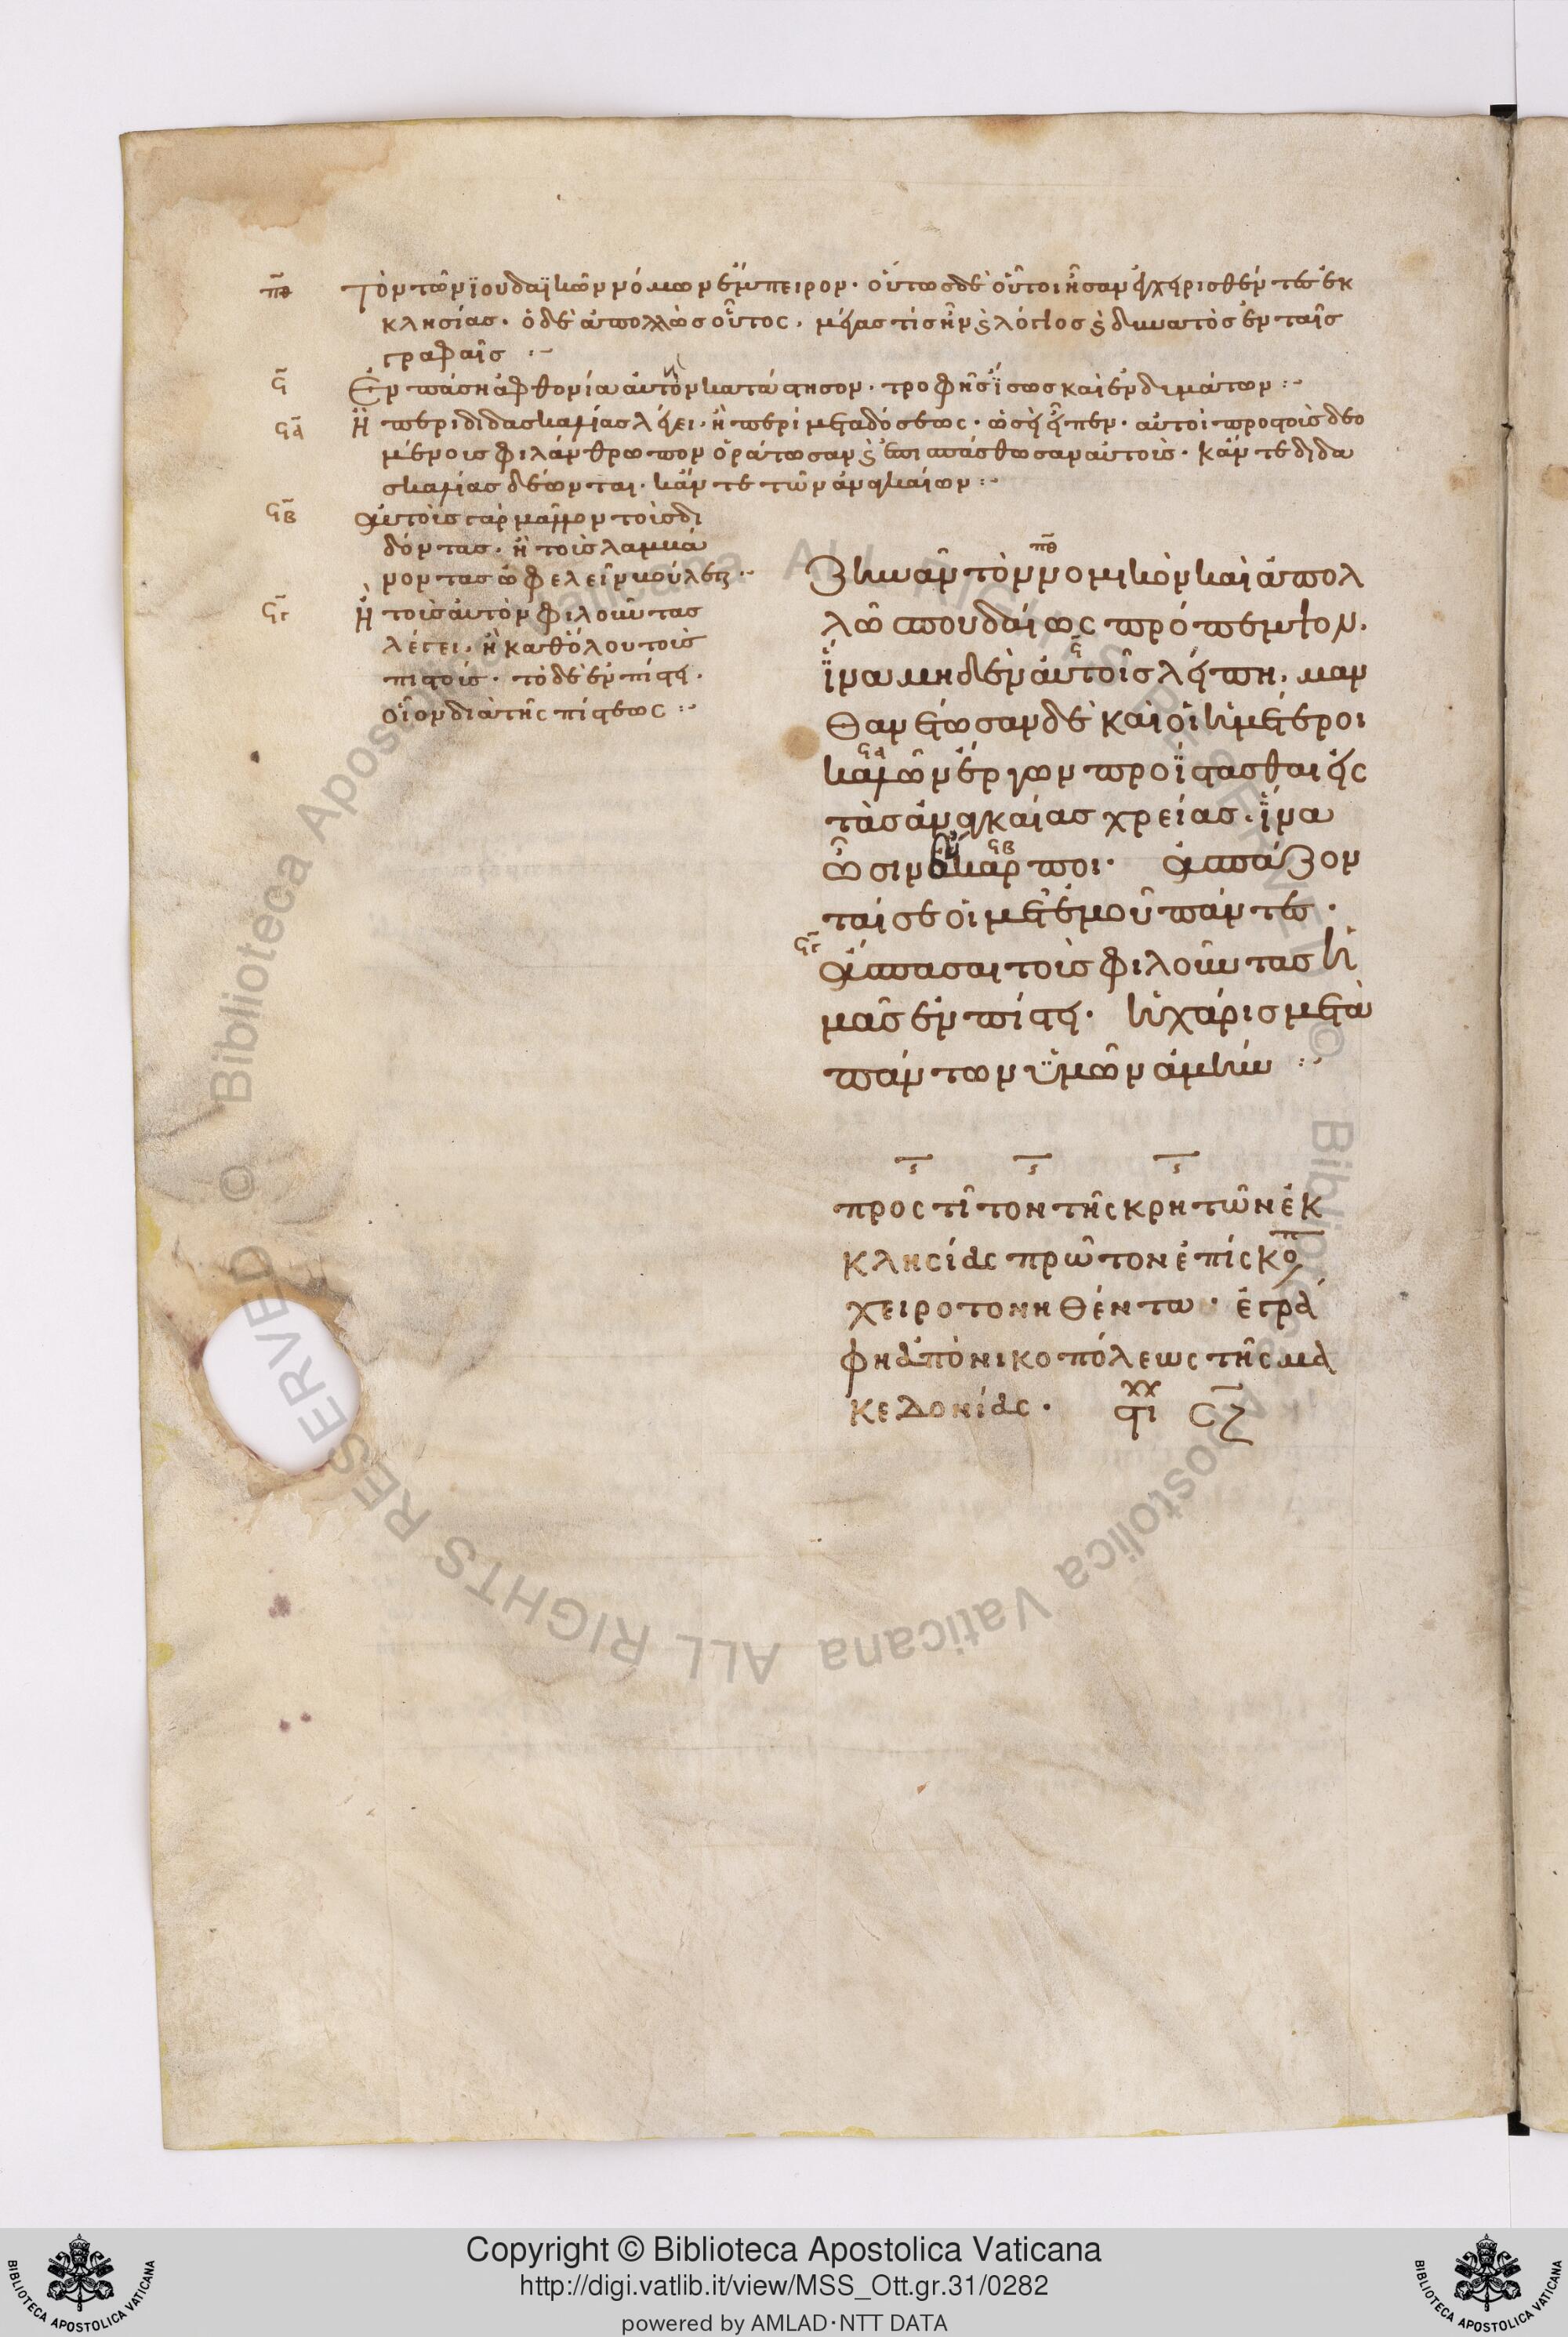 πθ Τὸν τῶν ἰουδαϊκῶν νόμων ἔμπειρον· οὕτως δὲ οὗτοι ἦσαν ἐγχειρισθέντες ἐκ
κλησίας· ὁ δὲ ἀπολλὼς οὗτος, μέγας τίς ἦν καὶ λόγιος καὶ δυνατὸς ἐν ταῖς
γραφαῖς :~
ϟ Ἐν πάσῃ ἀφθονία αὐτὸν κατάστησον· τροφῆς ἴσως καὶ ἐνδυμάτων :~
ϟα Ἢ περὶ διδασκαλίας λέγει· ἢ περὶ μεταδόσεως· ὡσεὶ εἶπεν· αὐτοὶ πρὸς τοὺς δεο
μένους φιλάνθρωπον ὁράτωσαν καὶ ἐπισπάσθωσαν αὐτοὺς· κἄν τε διδα
σκαλίας δέωνται· κἄν τε τῶν ἀναγκαίων :~
ϟβ Αὐτοὺς γὰρ μᾶλλον τοὺς δι
δόντας· ἢ τοὺς λαμβά
νοντας ὠφελεῖν βούλεται :~
ϟγ Ἢ τοὺς αὐτὸν φιλοῦντας
λέγει· ἢ καθόλου τοὺς
πιστούς· τὸ δὲ ἐν πίστει·
οἷον διὰ τῆς πίστεως :~
Ζηνᾶν τὸν νομικὸν καὶ ἀπολ
λῶ σπουδαίως πρόπεμψον·
ἵνα μηδὲν αὐτοῖς λείπη· μαν
θανέτωσαν δὲ καὶ οἱ ἡμέτεροι
καλῶν ἔργων προΐστασθαι εἰς
τὰς ἀναγκαίας χρείας· ἵνα
ὦσιν ἄκαρποι· ἀσπάζον
ταί σε οἱ μετ' ἐμοῦ πάντες·
ἄσπασαι τοὺς φιλοῦντας ἡ
μᾶς ἐν πίστει· ἡ χάρις μετὰ
πάντων ὑμῶν ἀμήν :~
προς τίτον τῆς κρητῶν ἐκ
κλησίας πρῶτον ἐπίσκοπ
χειροτονηθέντα· ἐγρά
φη ἀπὸ νικοπόλεως τῆς μα
κεδονίας· στι ϟζ
Copyright © Biblioteca Apostolica Vaticana
http://digi.vatlib.it/view/MSS_Ott.gr.31/0282
powered by AMLAD·NTT DATA